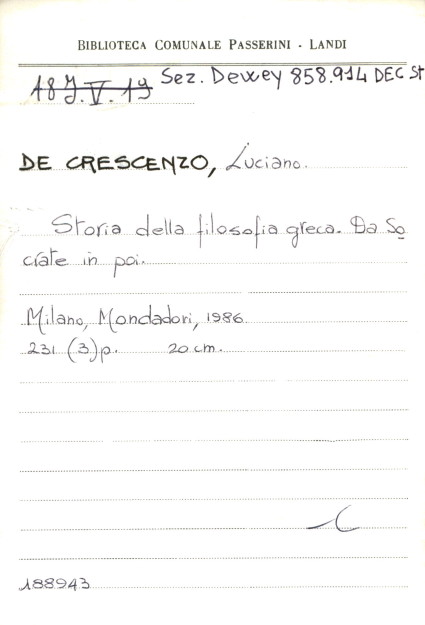 BIBLIOTECA COMUNALE PASSERINI - LANDI
18J.V.19 Sez. Dewey 858.914 DEC St
DE CRESCENZO, Luciano.
Storia della filosofia greca. Da So
crate in poi.
Milano, Mondadori, 1986
231 (3)p. 20 cm.
188943